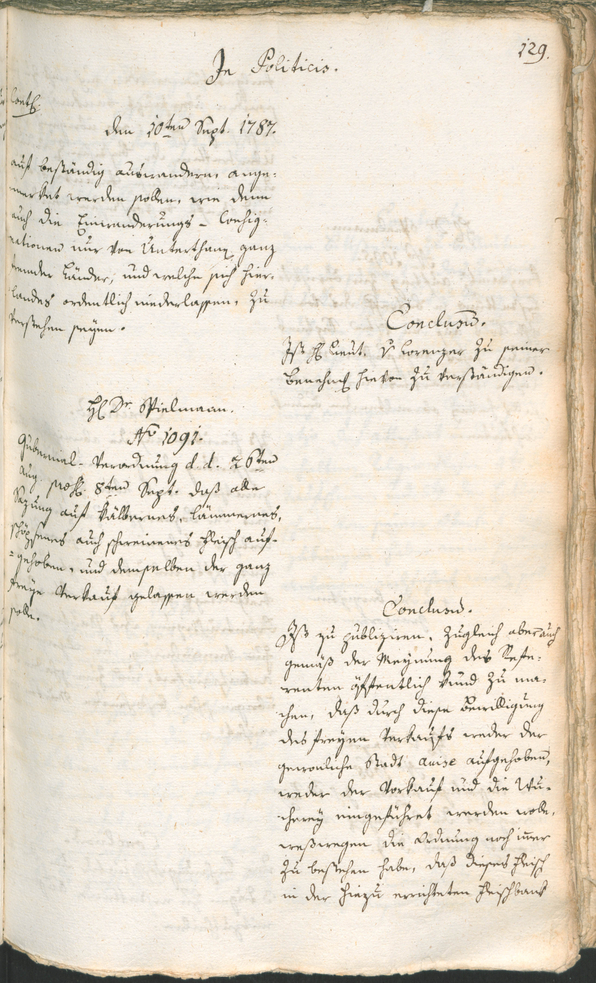 129.
In Politicis.
Contß
den 10ten Sept. 1787.
auf beständig auswandern, ange-
merket werden sollen, wie denn
auch die Einwanderungs-Consig-
nationen nur von Unterthanen ganz
fremder Länder, und welche sich hier-
landes ordentlich niederlassen, zu
verstehen seyen.
Conclusum.
Ist H. Lieut. v. Lorenzer zu seiner
Benehmung hievon zu verständigen.
H. Dr. Spielmann.
No 1091.
Gubernial-Verordnung d. d. 26ten
Aug. 8ten Sept. daß alle
Sazung auf kälbernes, lämmernes,
schöpsenes auch schweinenes Fleisch auf-
gehoben, und demselben der ganz
freye Verkauf gelassen werden
solle.
Conclusum.
Ist zu publiziren, zugleich aber auch
gemäß der Meynung des Refe-
renten öffentlich kund zu ma-
chen, daß durch diese Bewilligung
des freyen Verkaufs weder der
gewonliche Stadt aufgehoben,
weder der Vorkauf und die Wu-
cherey eingeführet werden wolle,
weßwegen die Ordnung noch imer
zu bestehen habe, daß dieses Fleisch
in der hiezu errichteten Fleischbank